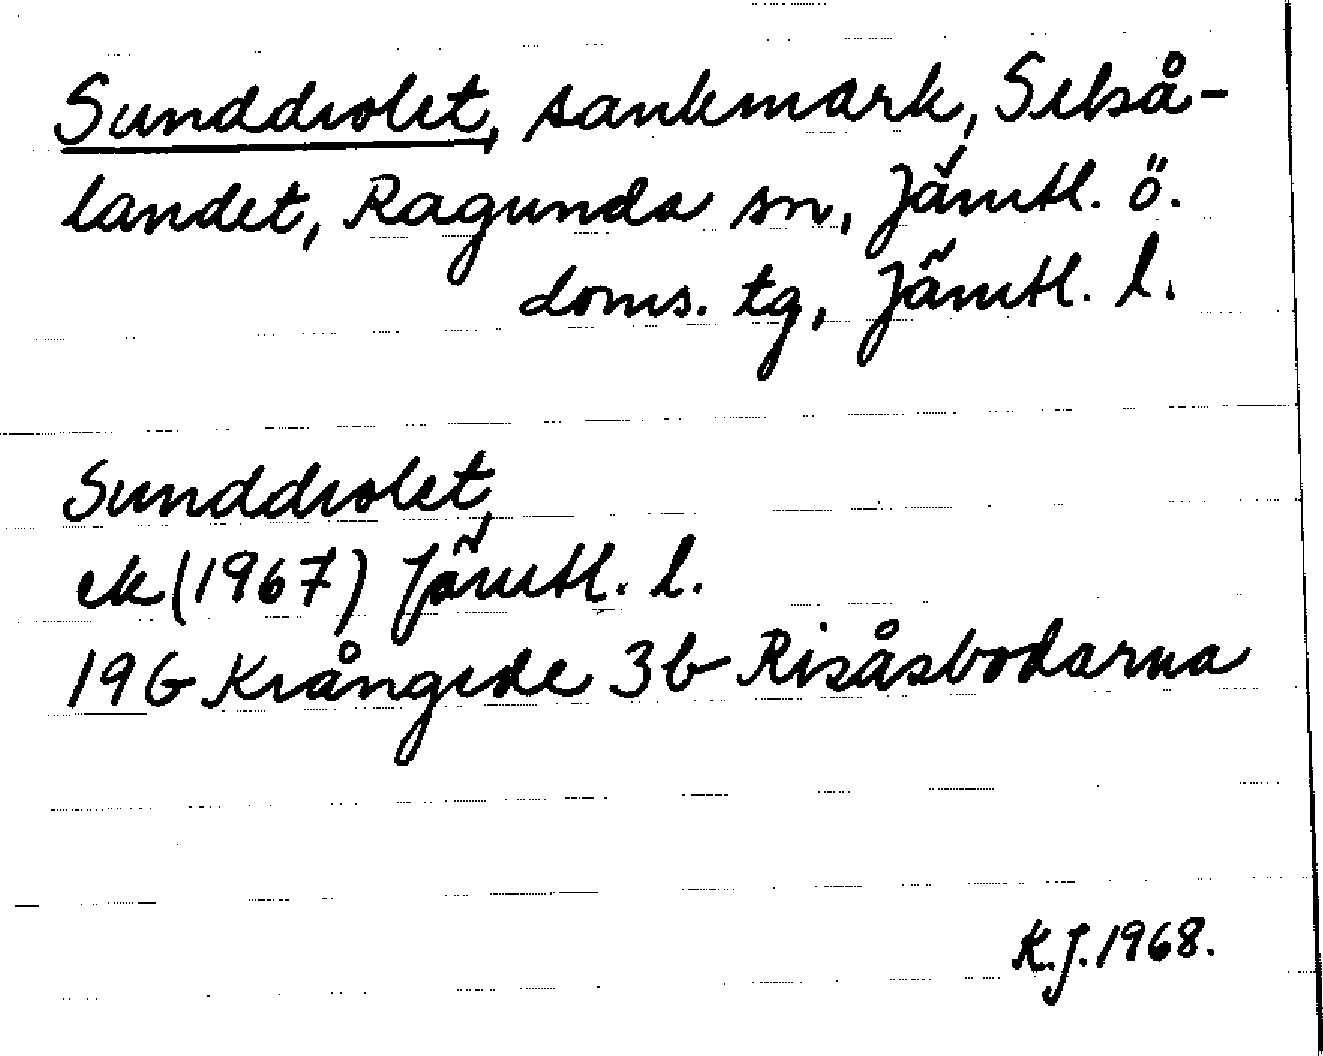 Sunddrolet, sankmark, Selså-
landet, Ragunda sn, Jämtl. ö.
doms. tg, Jämtl. l.
Sunddrolet,
ek (1967) Jämtl. l.
19G Krångede 3b Risåsbodarna
K.J. 1968.